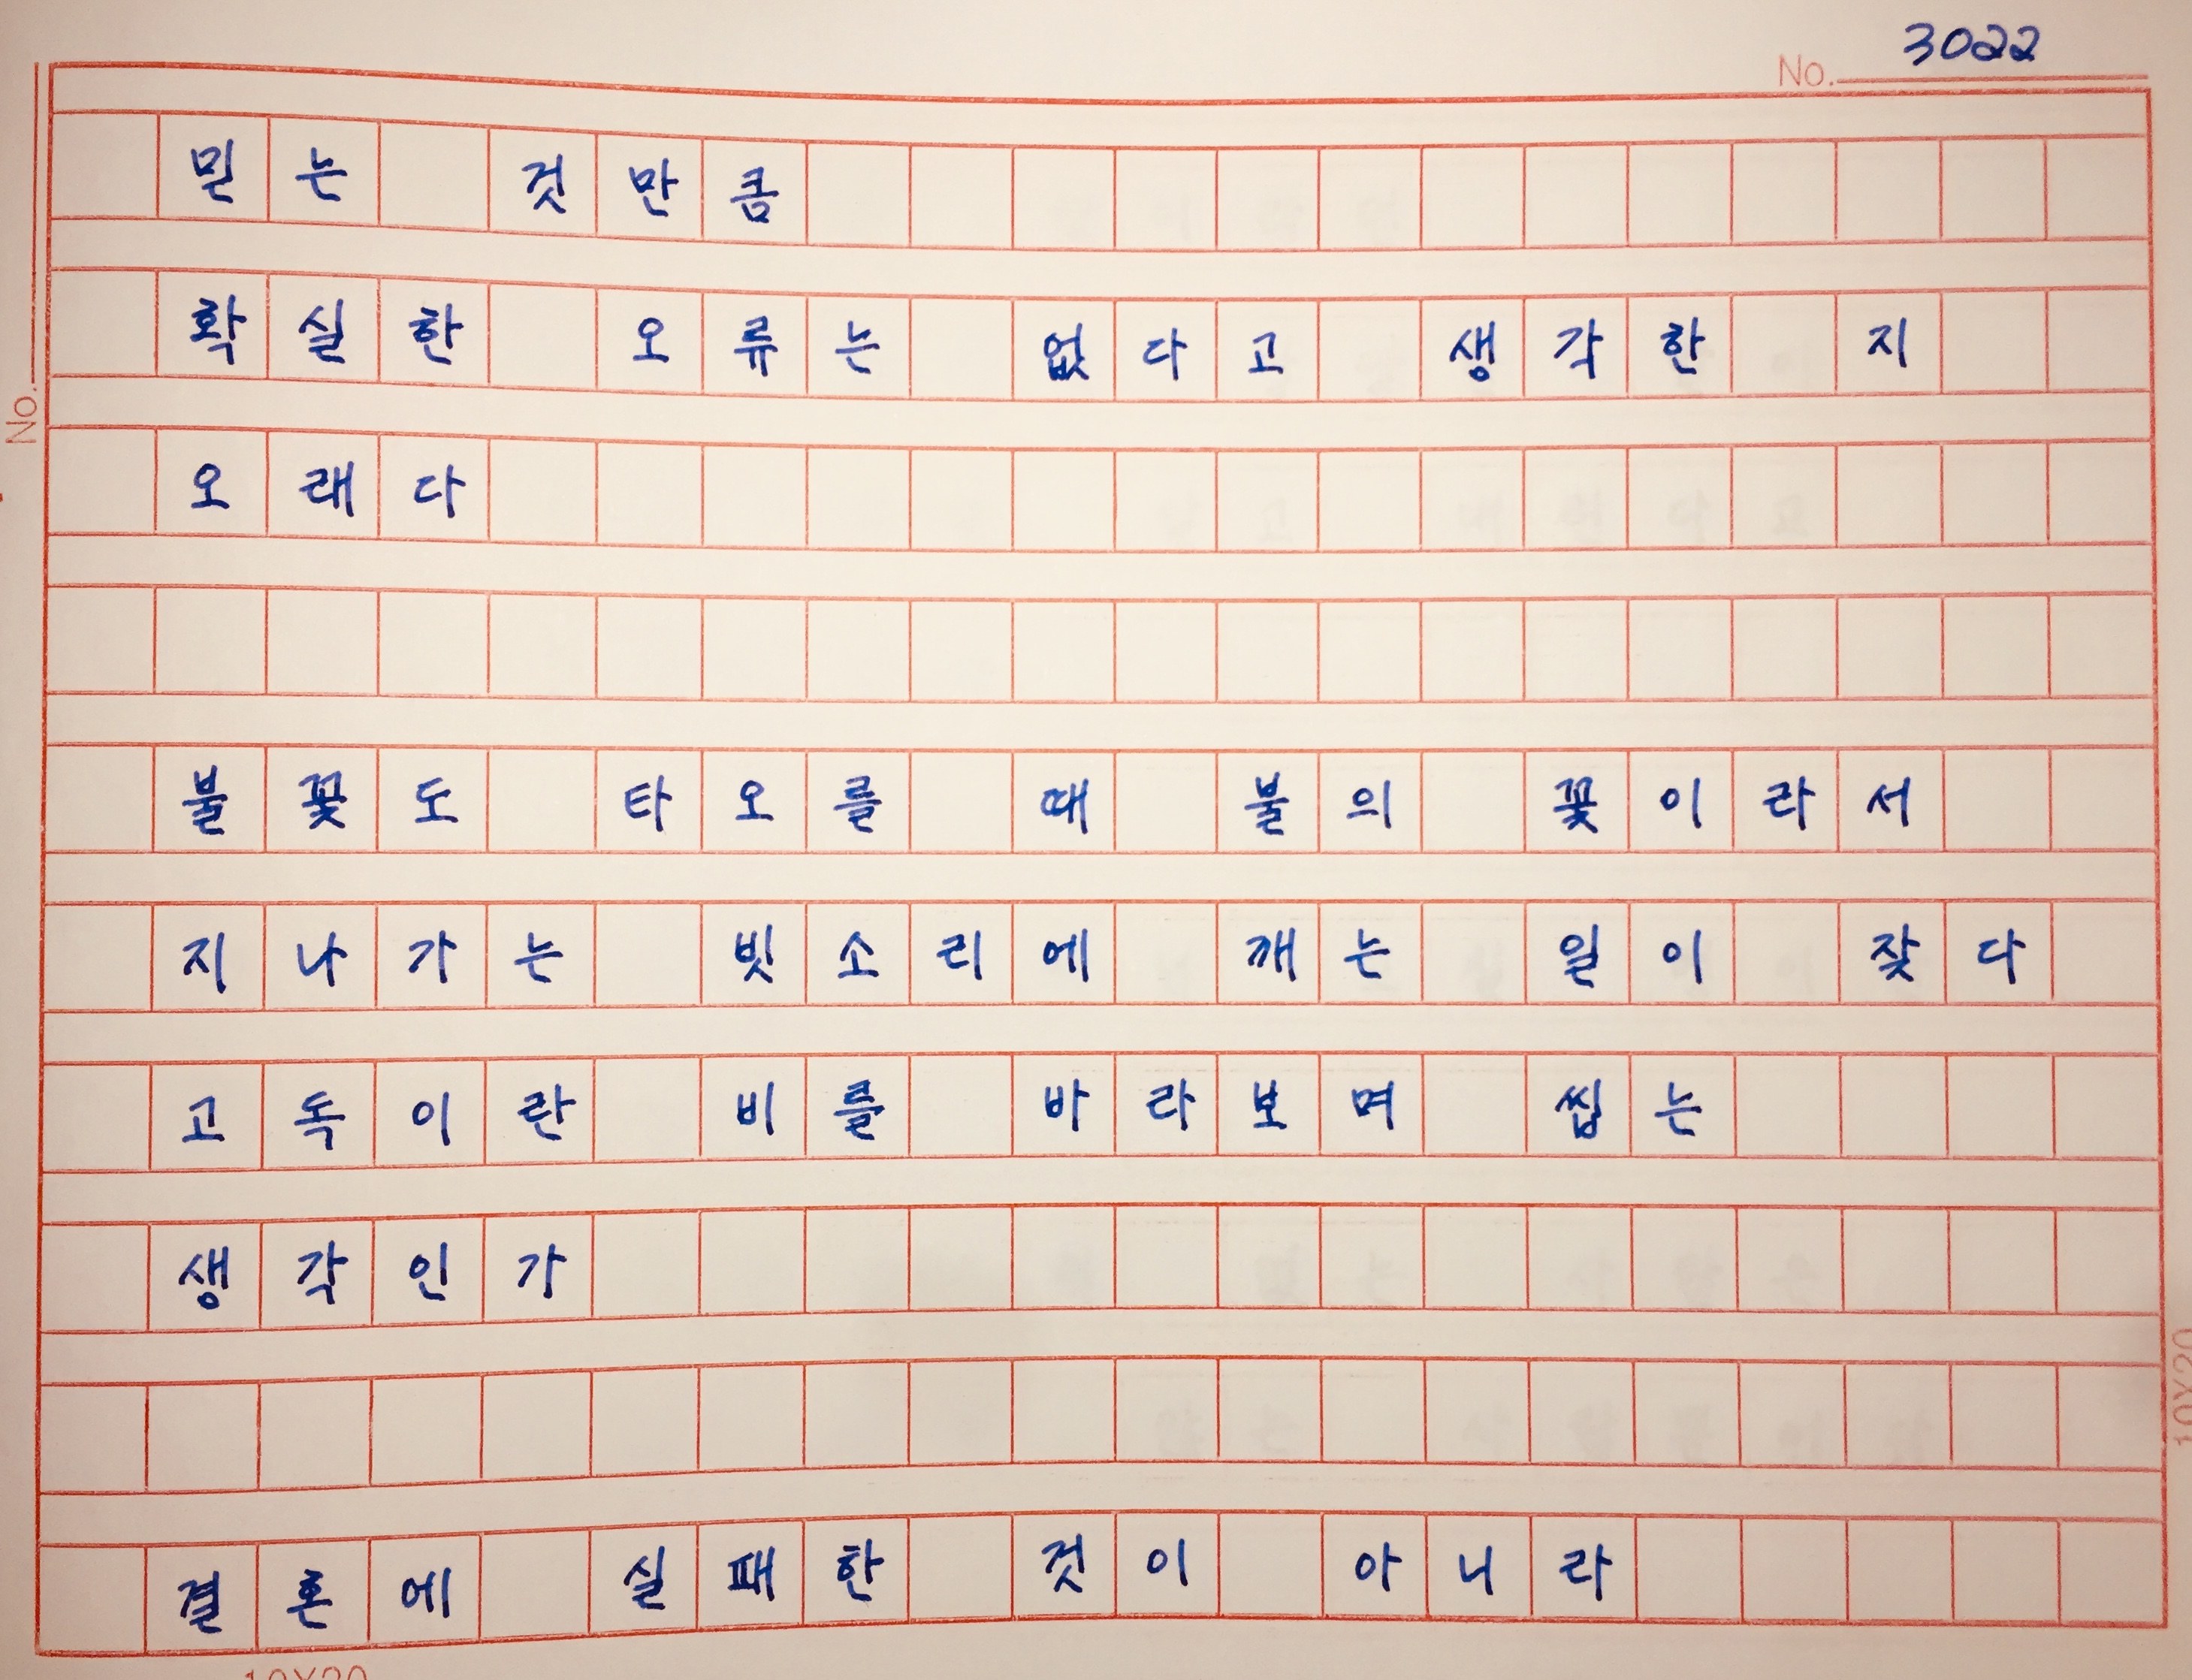 3022
No.
믿는 것만큼
확실한 오류는 없다고 생각한 지
오래다
불꽃도 타오를 때 불의 꽃이라서
지나가는 빗소리에 깨는 일이 잦다
고독이란 비를 바라보며 씹는
생각인가
결혼에 실패한 것이 아니라
No.
10X20
10X20